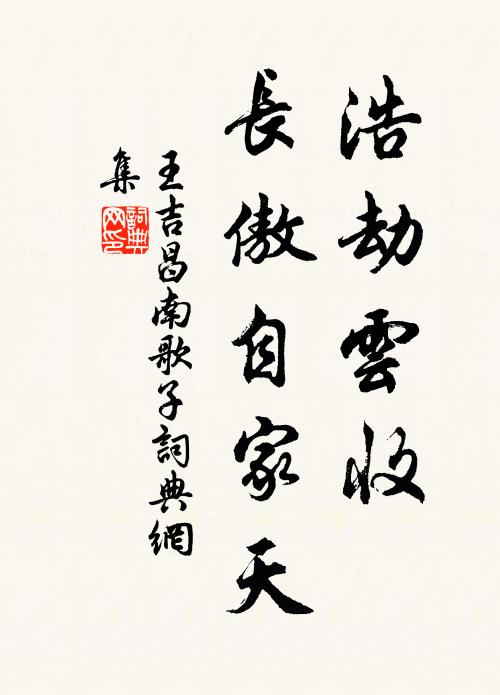 浩劫雲收
長傲自家天
王吉昌南歌子詞典網
集
詞典網印